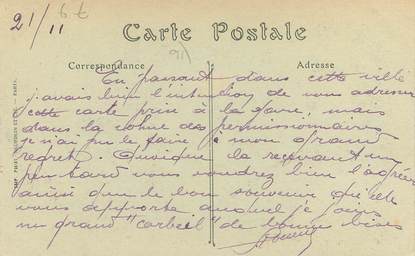 21/11
Carte Postale
Correspondance
Adresse
En passant dans cette ville
j'avais bien l'intention de vous adresser
cette carte prise à la gare, mais
dans la cohue des permissionnaires
je n'ai pu le faire à mon grand
regret. Quoique la recevant un
peu tard vous voudrez bien l'agréer
ainsi que le bon souvenir qu'elle
vous apporte auquel je joins
un grand "corbeil" de bonne bises